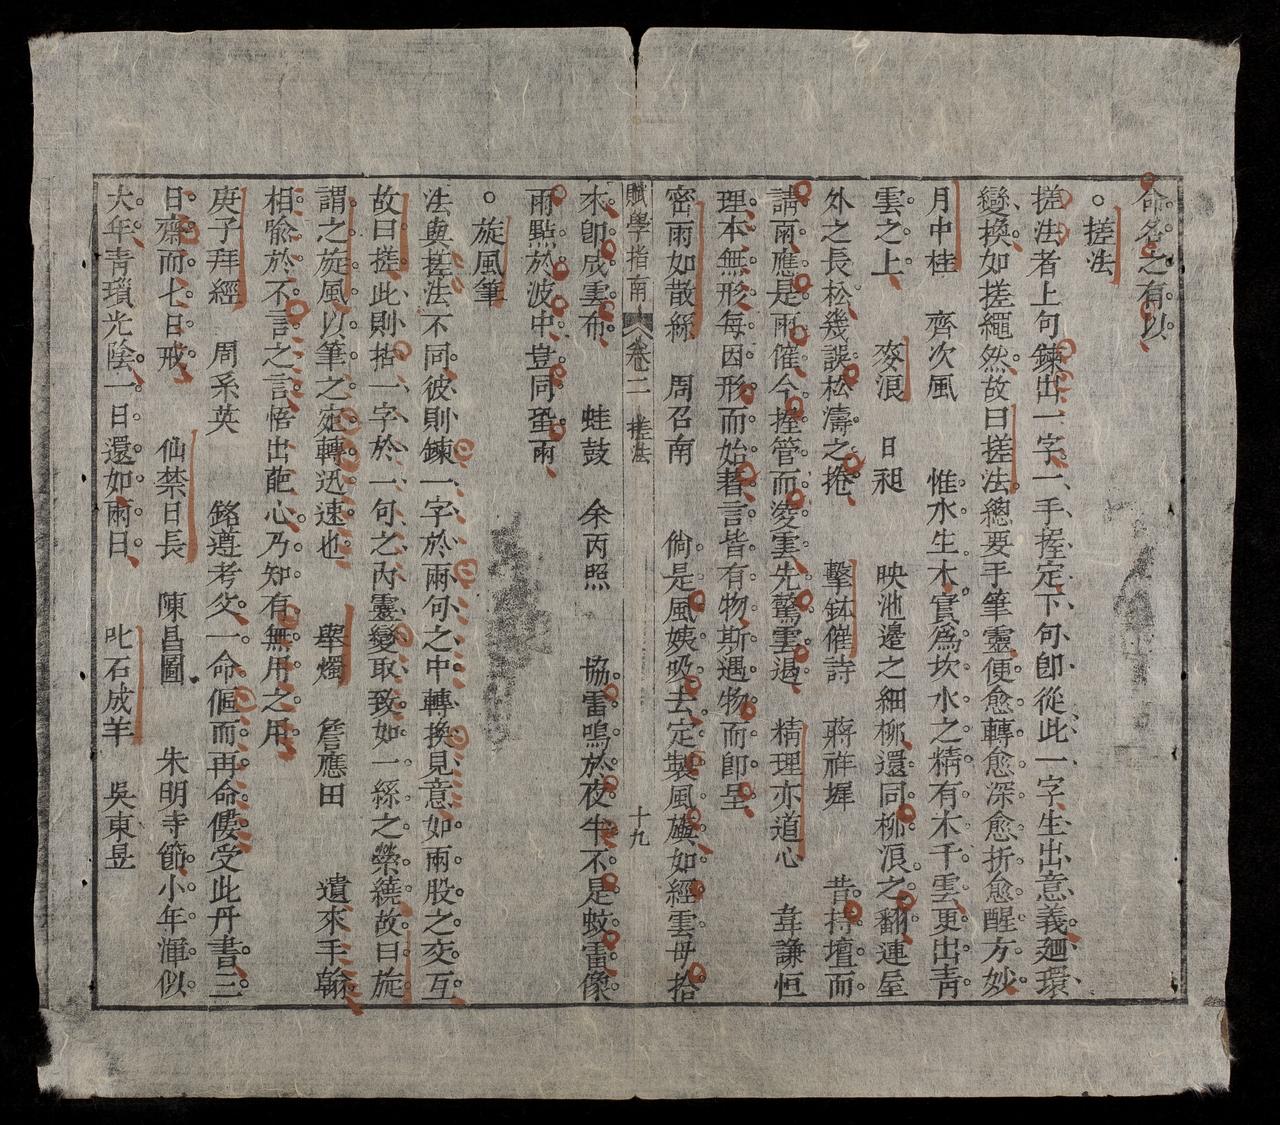 命名之有以
○搓法
搓法者上句鍊出一字一手握定下句卽從此一字生出意義廻環
變換如搓繩然故曰搓法總要手筆靈便愈轉愈深愈折愈醒方妙
月中桂 齊次風 惟水生木實爲坎水之精有木千雲更出靑
雲之上 麥浪 日昶 映池邊之細柳還同柳浪之翻連屋
外之長松幾誤松濤之捲 擊鉢催詩 蔣祥墀 昔持壇而
請雨應是雨催今握管而凌雲先驚雲遏 精理亦道心 韋謙恒
理本無形每因形而始著言皆有物斯遇物而卽呈
密雨如散絲 周召南 倘是風姨吸去定製風旟如經雲母拾
賦學指南 卷二 搓法 十九
來卽成雲布 蛙鼓 余丙照 協雷鳴於夜半不是蚊雷像
雨點於波中豈同蛩雨
○旋風筆
法與搓法不同彼則鍊一字於兩句之中轉換見意如兩股之交互
故曰搓此則拈一字於一句之內靈變取致如一絲之縈繞故曰旋
謂之旋風以筆之宛轉迅速也 舉燭 詹應田 遺來手翰
相喩於不言之言悟出葩心乃知有無用之用
庚子拜經 周系英 銘遵考父一命傴而再命僂受此丹書三
日齋而七日戒 仙禁日長 陳昌圖 朱明寺節小年渾似
大年靑瑣光陰一日還如兩日 叱石成羊 吳東昱